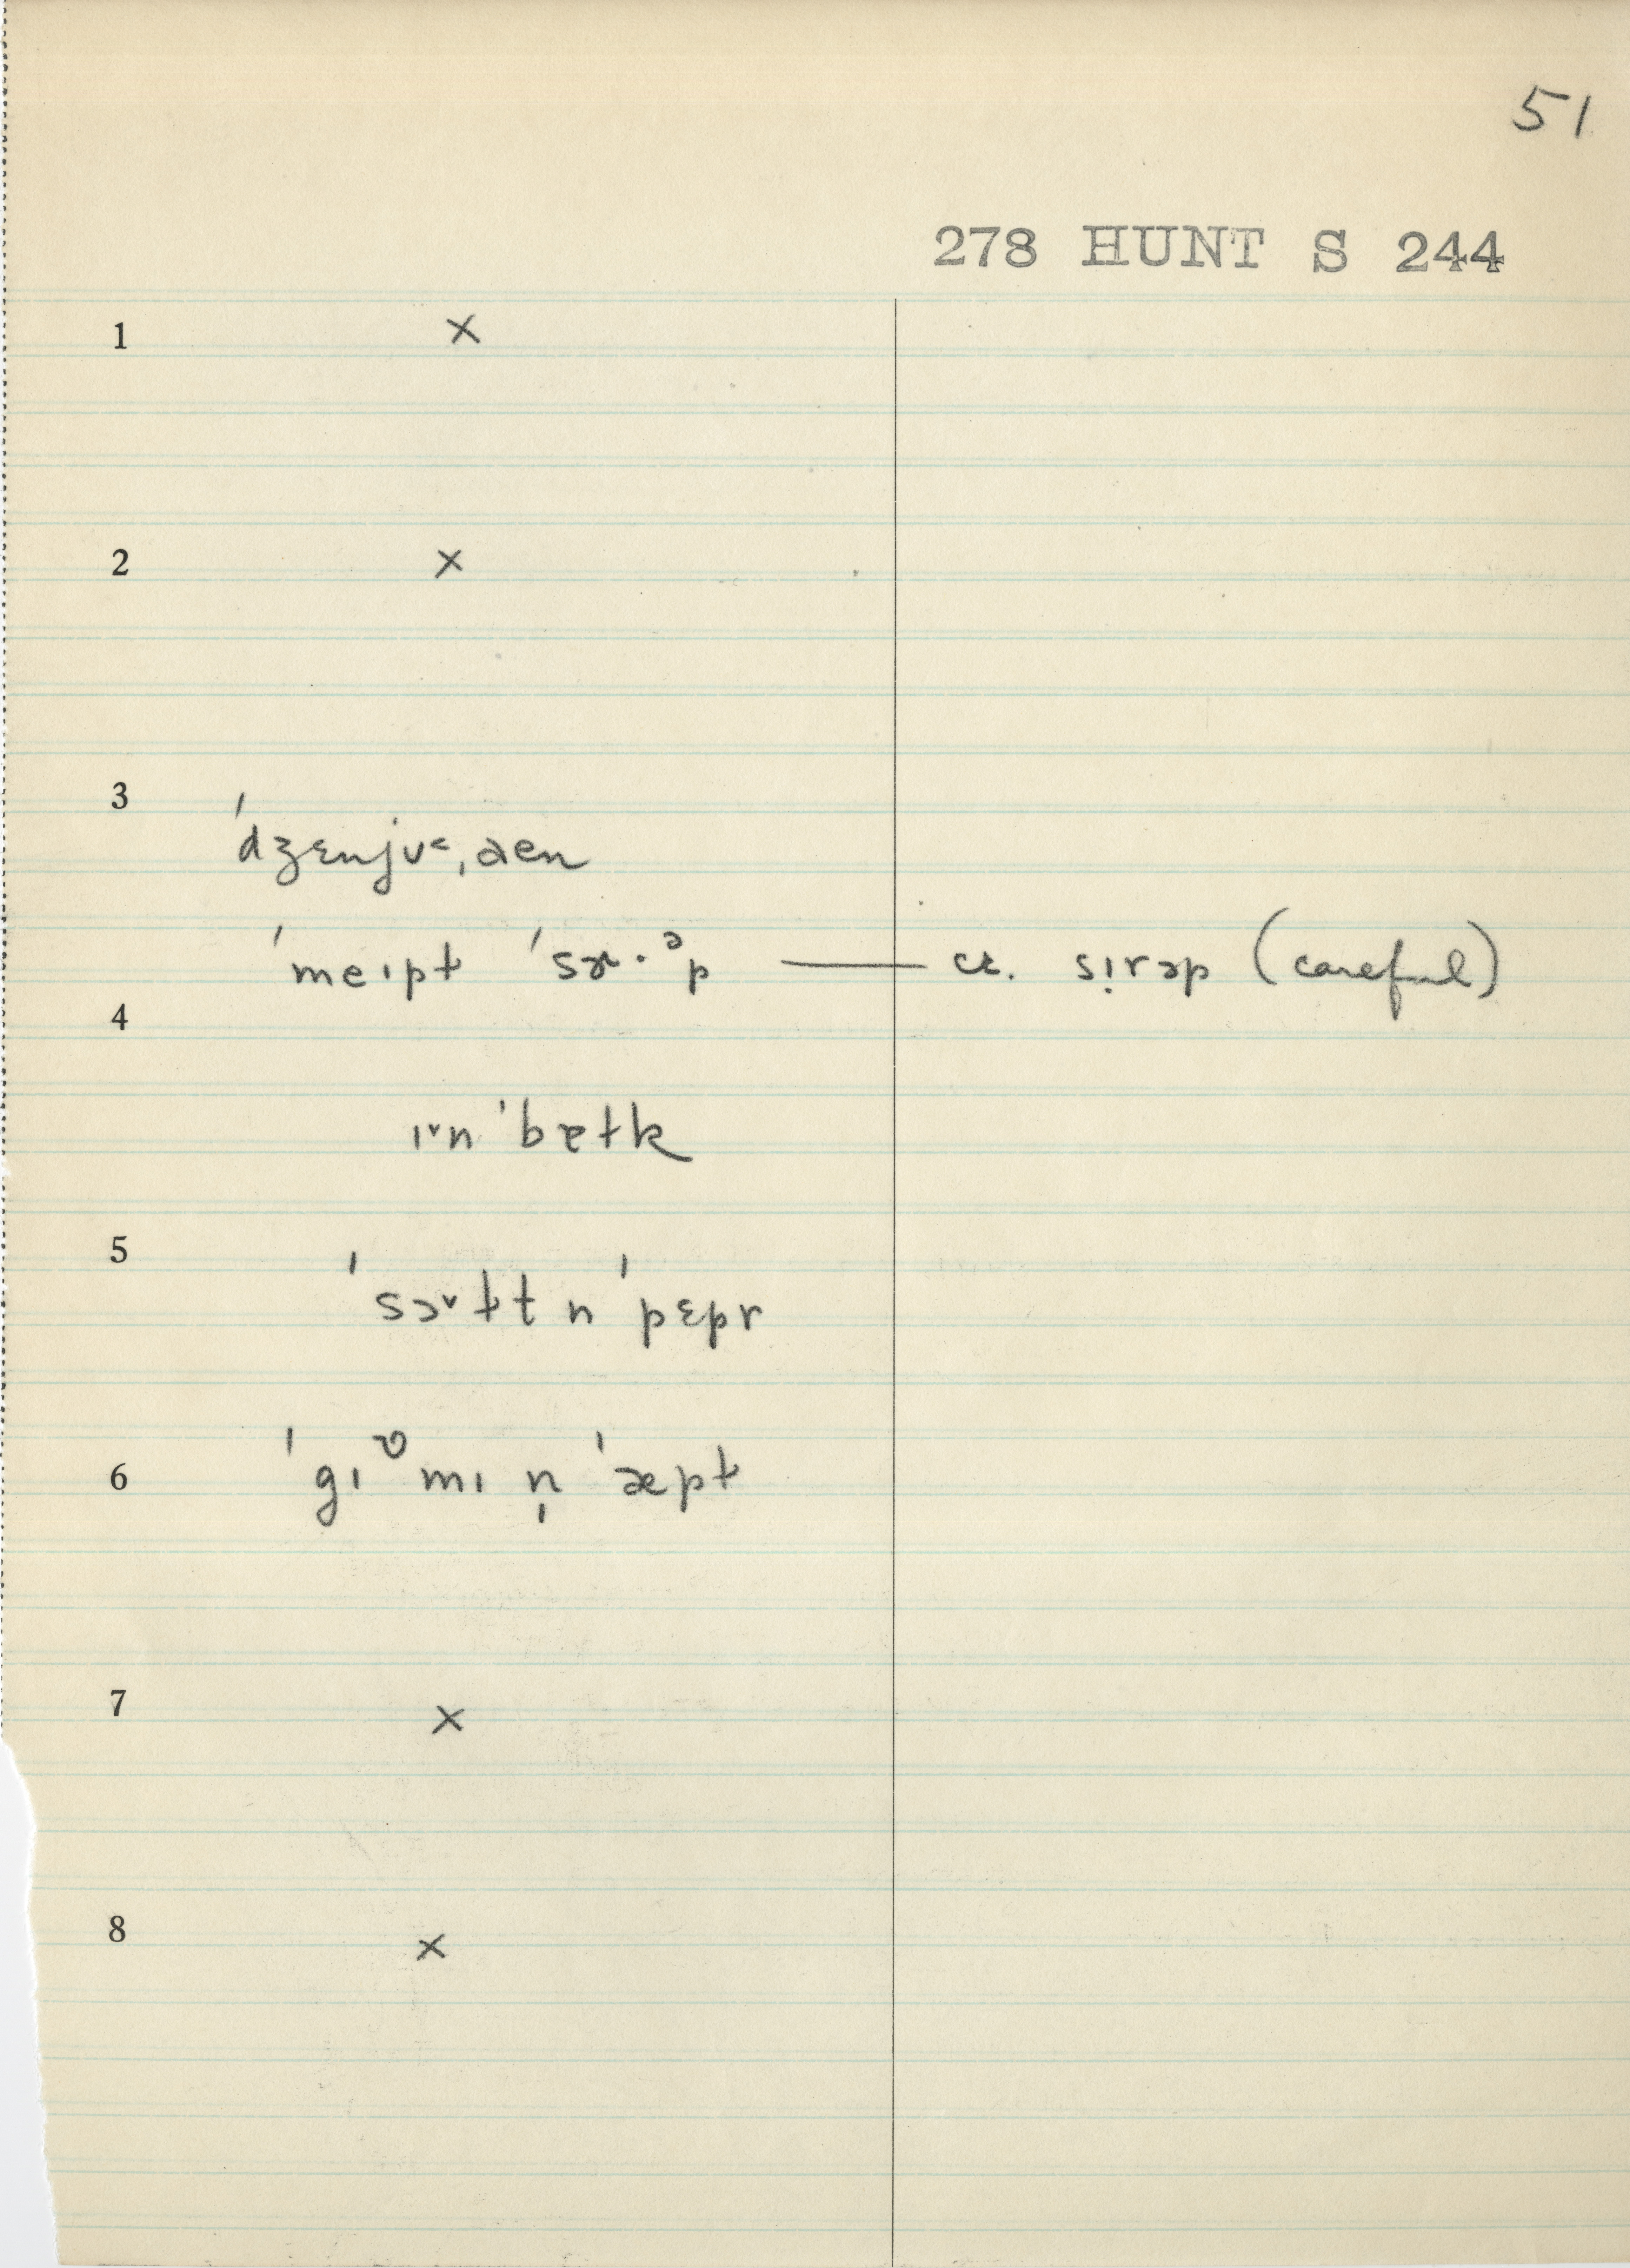 51
278 HUNT S 244
1 ×
2 ×
3
ˈdʒɛnjʊ˂ˌaen
ˈmeɪpɫ ˈsɚ·ᵊp — cr. sɪ̣rəp (careful)
4
ɪ˅n ˈbɐɫk
5
ˈsɔ˅ɫt n ˈpɛpr
6 ˈgɪᶹmɪ n̩ ˈæpɫ
7 ×
8 ×